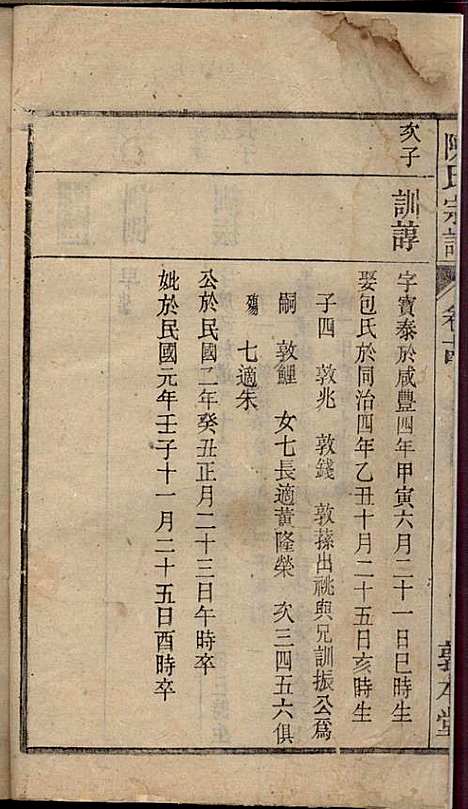 陳氏宗譜
卷十四
敦本堂
次子
訓諄
字寶泰於咸豐四年甲寅六月二十一日巳時生
娶包氏於同治四年乙丑十月二十五日亥時生
子四　敦兆　敦錢　敦蓀出祧與兄訓振公爲
嗣　敦鯉　女七長適黃隆榮　次三四五六俱
殤　七適朱
公於民國二年癸丑正月二十三日午時卒
妣於民國元年壬子十一月二十五日酉時卒